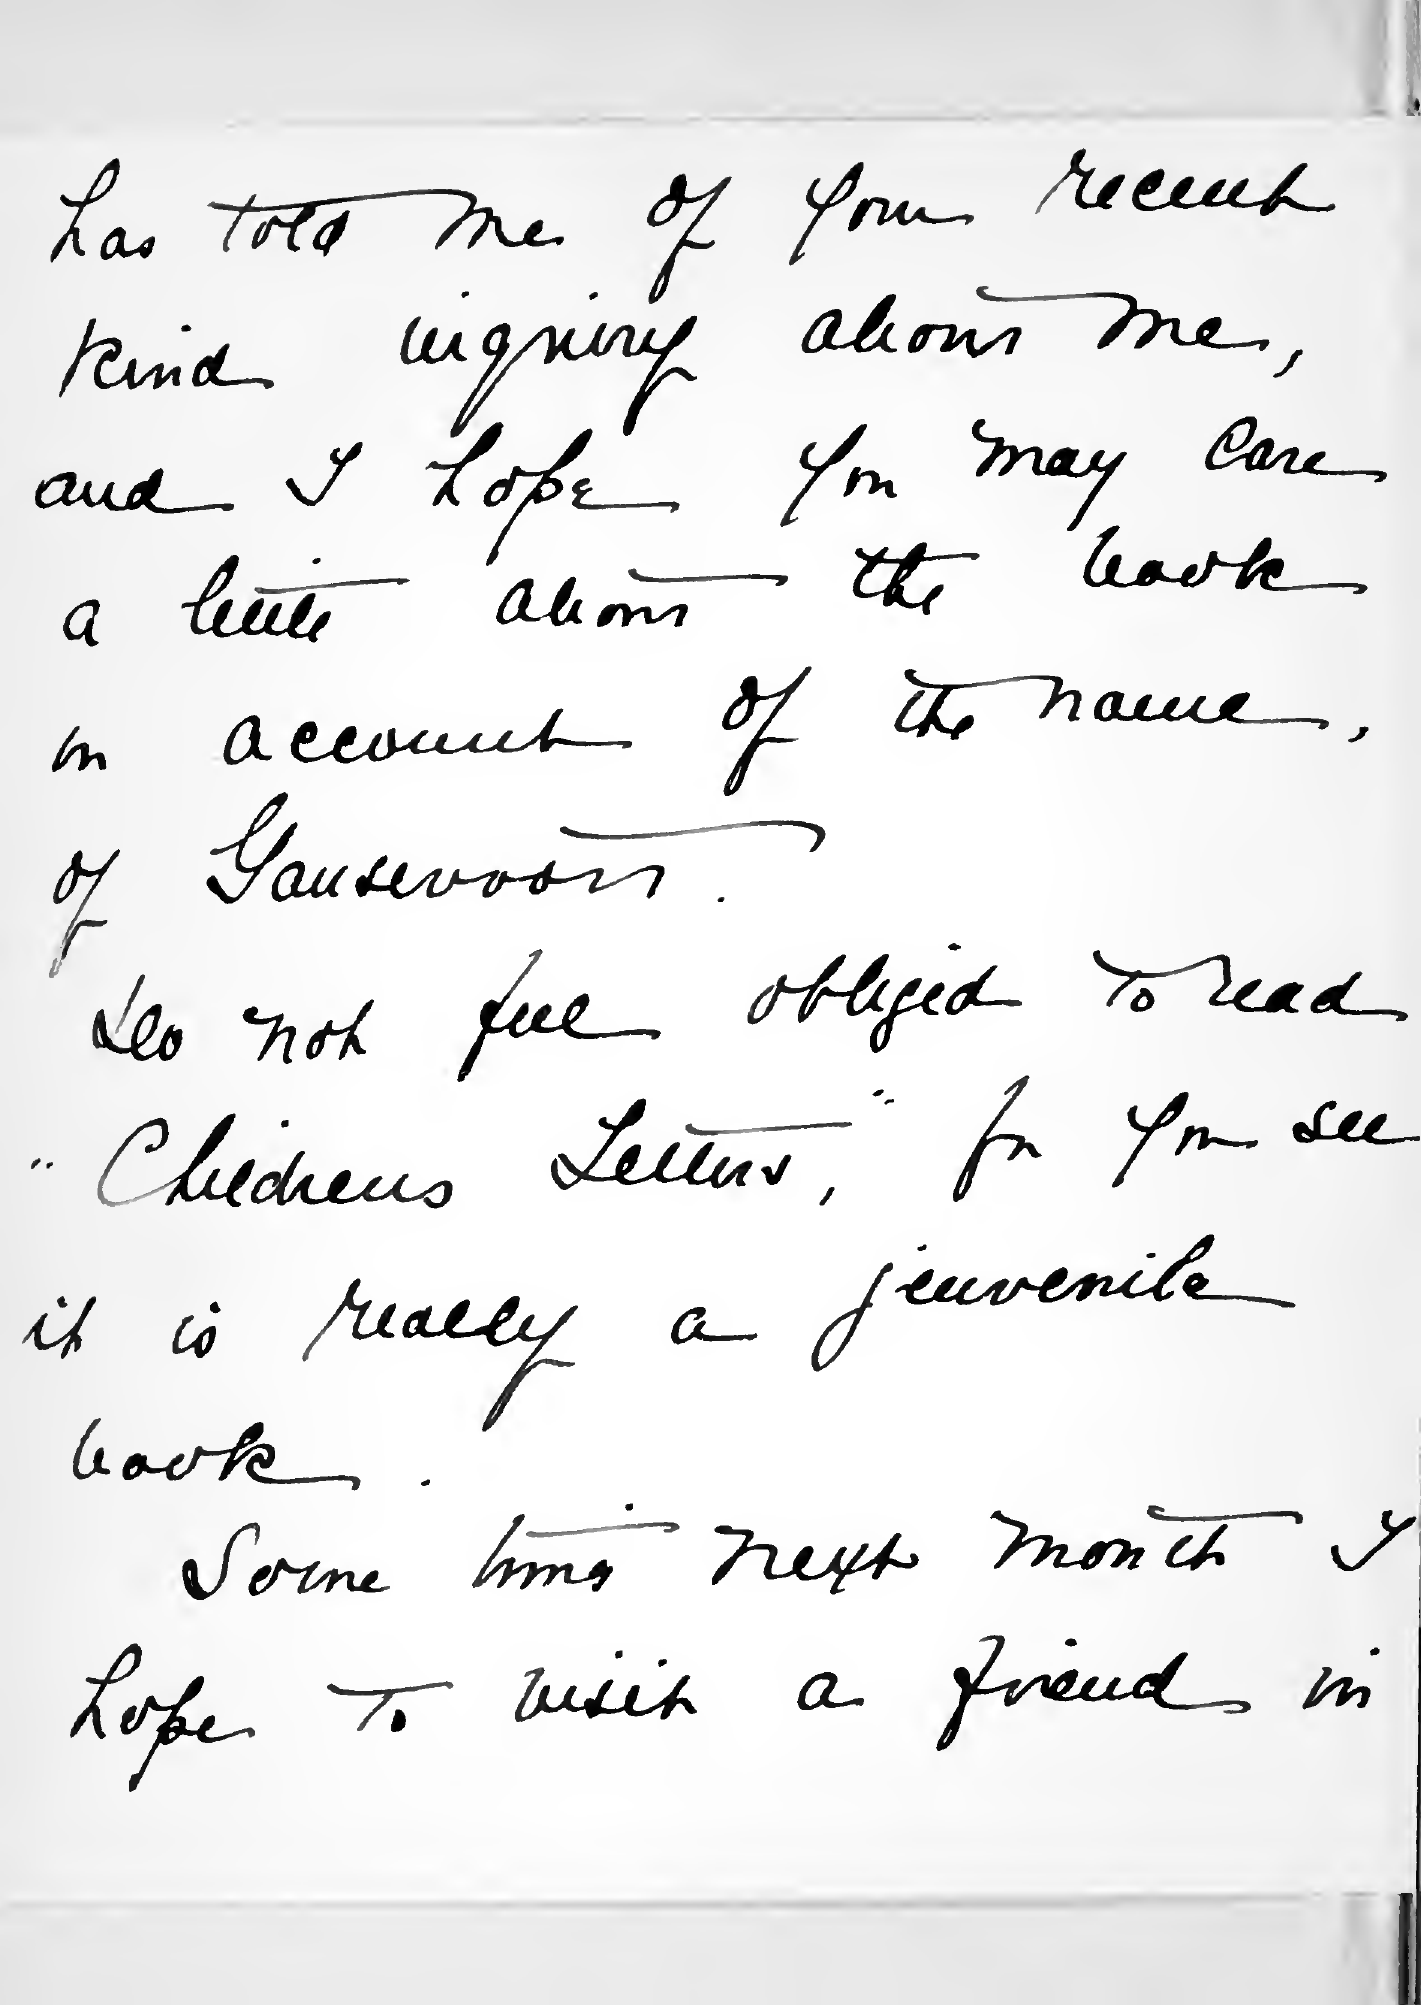 has told me of your recent
kind inquiry about me,
and I hope you may care
a little about the book
on account of the name,
of Gansevoort.
Do not feel obliged to read
"Childrens Letters," for you see
it is really a jeuvenile
book.
Some time next month I
hope to visit a friend in